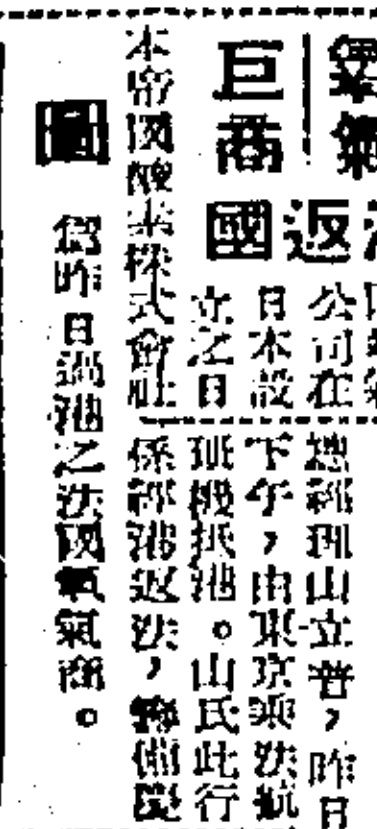 氣
巨商
返國
公司在
日本設
立之日
本帝國酸素株式會社
總經理山立普，昨日
下午，由東京乘法航
班機抵港。山氏此行
係經港返法，
圖 為昨日過港之法國氧氣商。